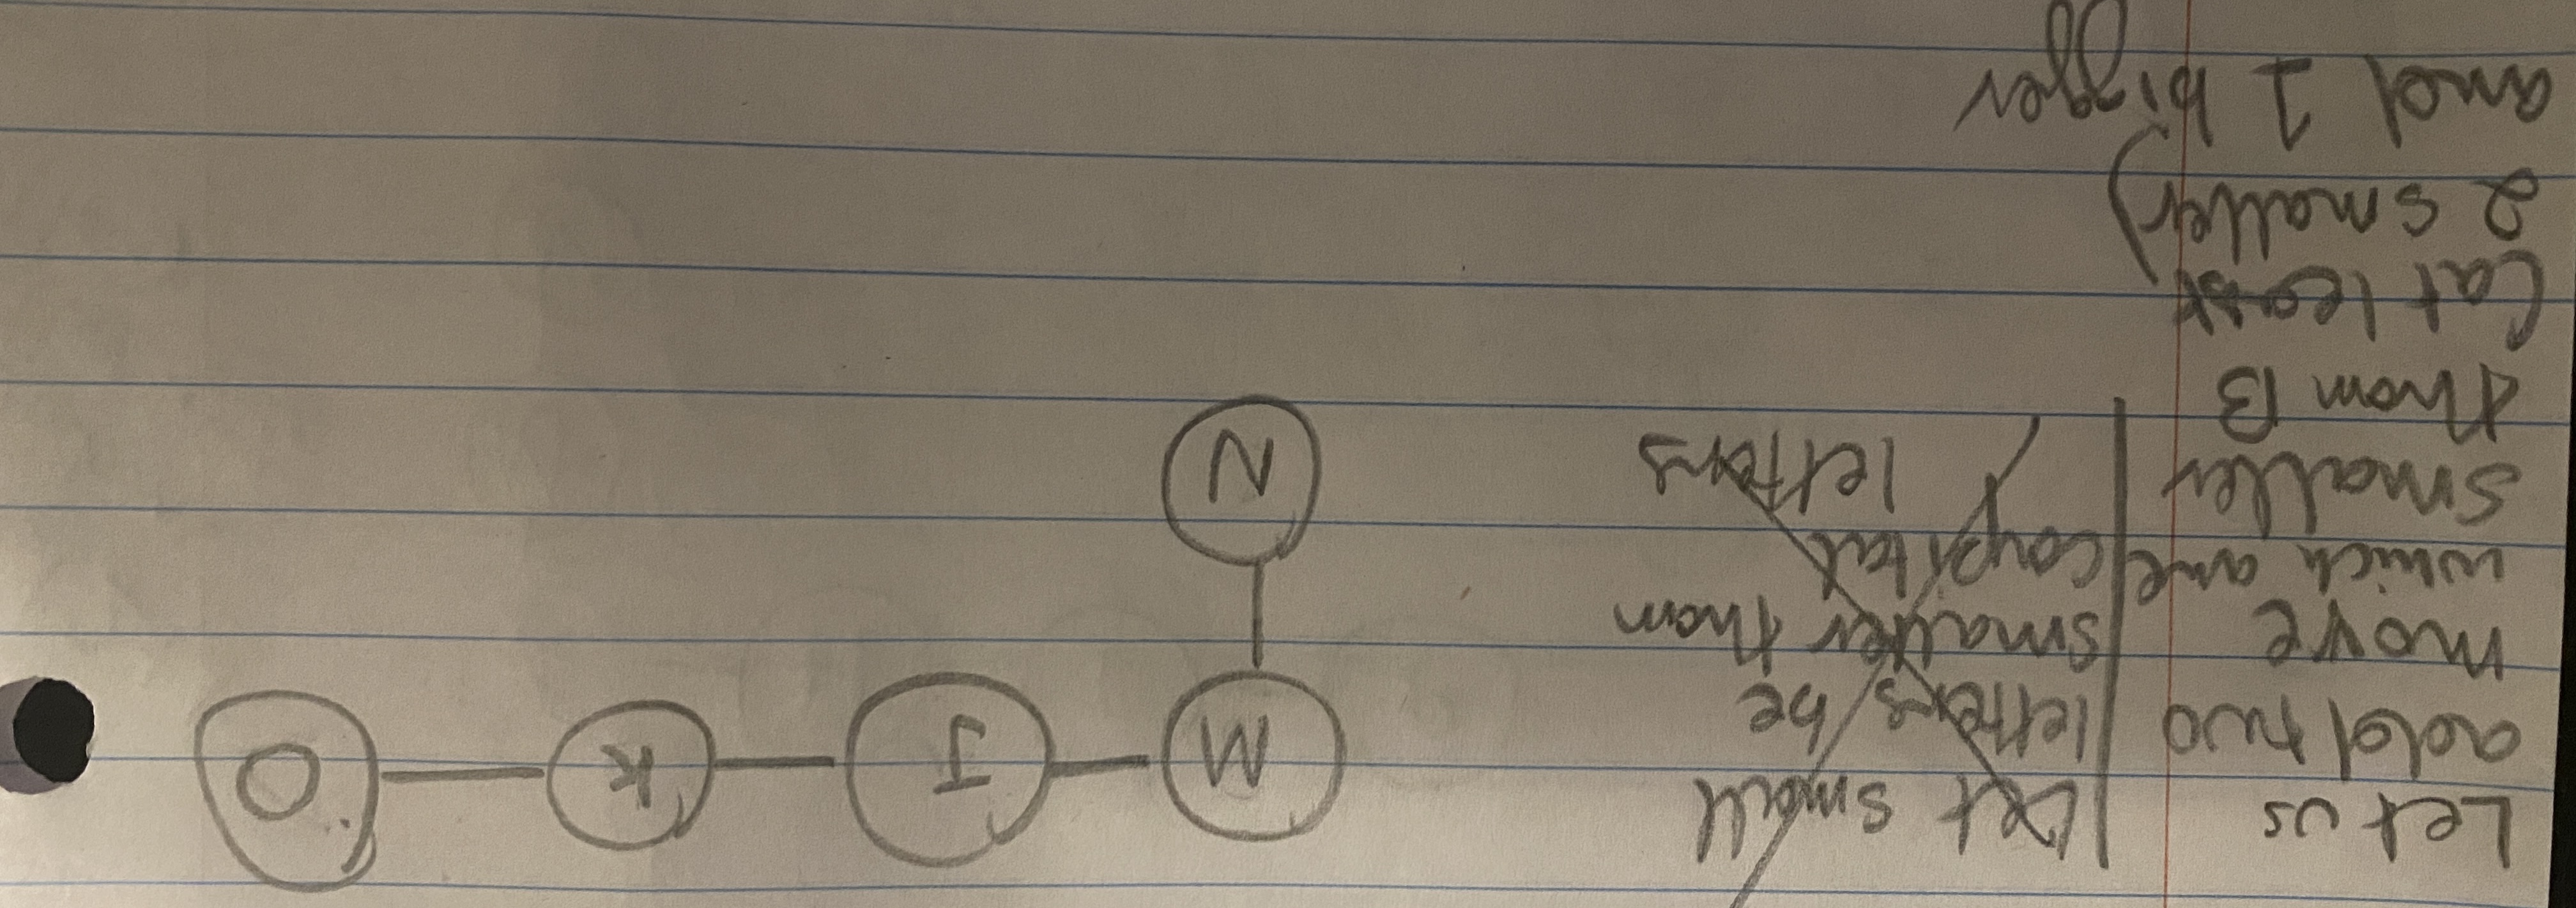 Let us
add two
more
which are
smaller
than B
(at least
2 smaller)
and 1 bigger
Let small
letters be
smaller than
capital
letters
M J K O
N